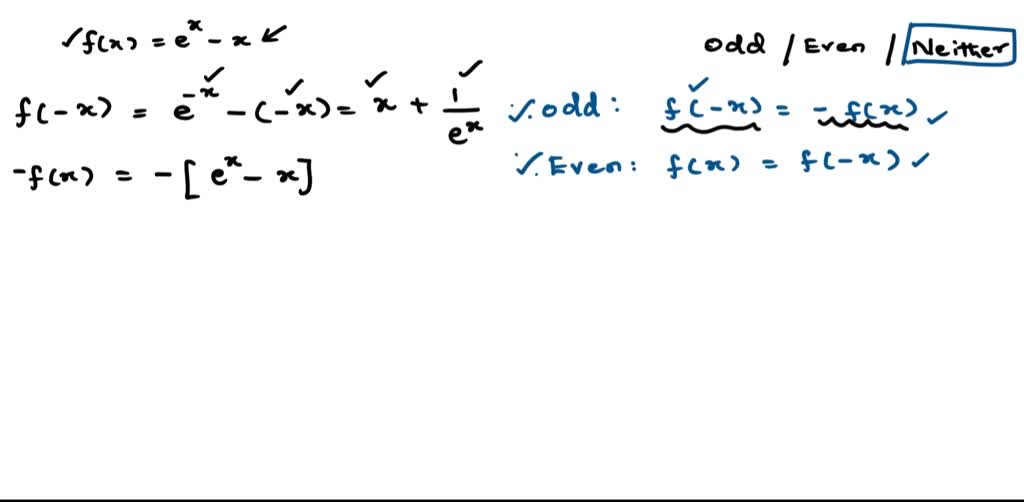 ✓f(x) = e^x - x ↙
odd / Even / Neither
f(-x) = e^-x - (-x) = x + 1/e^x
✓. odd: f(-x) = -f(x) ✓
-f(x) = -[e^x - x]
✓. Even: f(x) = f(-x) ✓